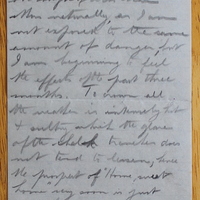 than naturally, as I am
not exposed to the same
amount of danger, but
I am beginning to feel
the effects of the past three
months. To crown all
the weather is intensely hot
& sultry which the glare
of the chalk trenches does
not tend to lessen, hence
the prospect of "Home, sweet
home" very soon is just